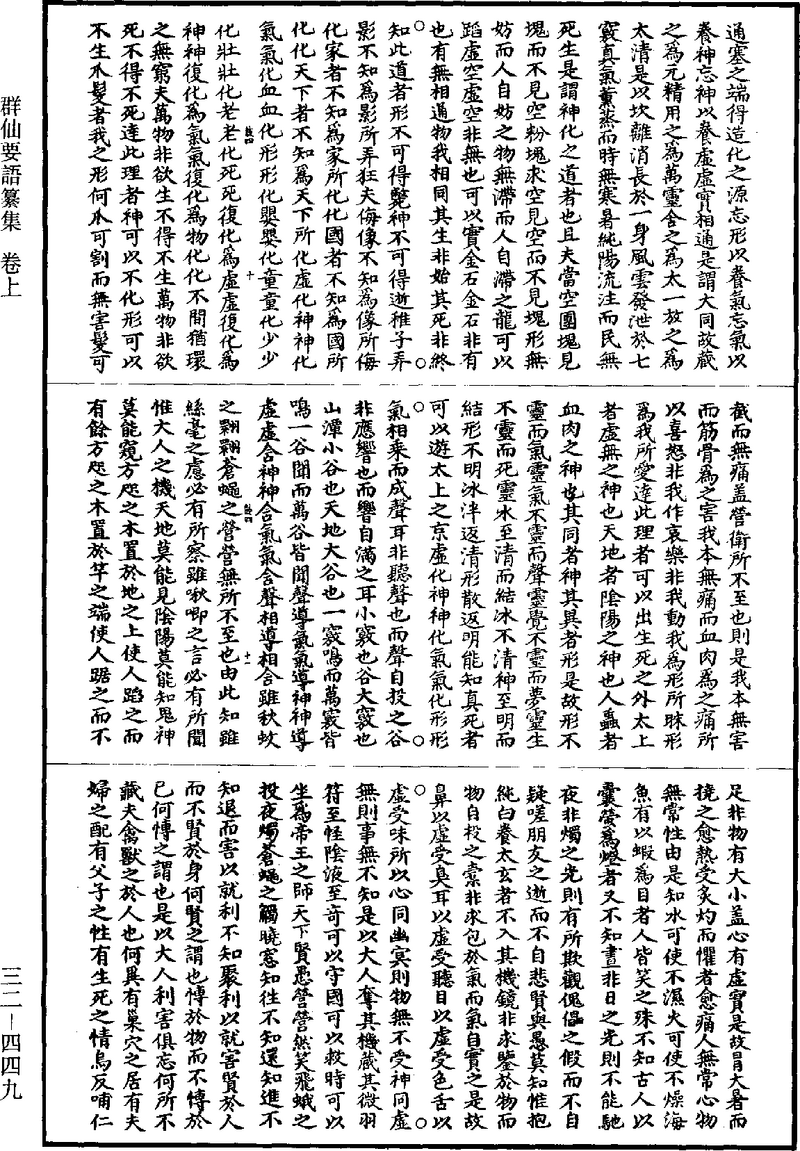 通塞之端得造化之源忘形以養氣忘氣以
養神忘神以養虛虛實相通是謂大同故藏
之為元精用之為萬靈含之為太一放之為
太清是以坎離消長於一身風雲發泄於七
竅真氣薰蒸而時無寒暑純陽流注而民無
死生是謂神化之道者也且夫當空團塊見
塊而不見空粉塊求空見空而不見塊形無
妨而人自妨之物無滯而人自滯之龍可以
蹈虛空虛空非無也可以實金石金石非有
也有無相通物我相同其生非始其死非終
○知此道者形不可得斃神不可得逝稚子弄○
影不知為影所弄狂夫侮像不知為像所侮
化家者不知為家所化化國者不知為國所
化化天下者不知為天下所化虛化神神化
氣氣化血血化形形化嬰嬰化童童化少少
十
化壯壯化老老化死死復化為虛虛復化為
神神復化為氣氣復化為物化化不間猶環
之無窮夫萬物非欲生不得不生萬物非欲
死不得不死達此理者神可以不化形可以
不生爪髮者我之形何爪可割而無害髮可
截而無痛蓋營衛所不至也則是我本無害
而筋骨為之害我本無痛而血肉為之痛所
以喜怒非我作哀樂非我動我為形所昧形
為我所愛達此理者可以出生死之外太上
者虛無之神也天地者陰陽之神也人蟲者
血肉之神也其同者神其異者形是故形不
靈而氣靈氣不靈而聲靈覺不靈而夢靈生
不靈而死靈水至清而結冰不清神至明而
結形不明冰泮返清形散返明能知真死者
可以遊太上之京虛化神神化氣氣化形形
○氣相乘而成聲耳非聽聲也而聲自投之谷○
非應響也而響自滿之耳小竅也谷大竅也
山潭小谷也天地大谷也一竅鳴而萬竅皆
鳴一谷聞而萬谷皆聞聲導氣氣導神神導
虛虛含神神含氣氣含聲相導相含雖秋蚊
十一
之翾翾蒼蠅之營營無所不至也由此知雖
絲毫之慮必有所察雖啾唧之言必有所聞
惟大人之機天地莫能見陰陽莫能知鬼神
莫能窺方咫之木置於地之上使人蹈之而
有餘方咫之木置於竿之端使人踞之而不
足非物有大小蓋心有虛實是故冒大暑而
撓之愈熱受炙灼而懼者愈痛人無常心物
無常性由是知水可使不濕火可使不燥海
魚有以蝦為目者人皆笑之殊不知古人以
囊螢為燈者又不知晝非日之光則不能馳
夜非燭之光則有所欺觀傀儡之假而不自
疑嗟朋友之逝而不自悲賢與愚莫知惟抱
純白養太玄者不入其機鏡非求鑒於物而
物自投之橐非求包於氣而氣自實之是故
鼻以虛受臭耳以虛受聽目以虛受色舌以
○虛受味所以心同幽冥則物無不受神同虛○
無則事無不知是以大人奪其機藏其微羽
符至怪陰液至奇可以守國可以救時可以
坐為帝王之師天下賢愚營營然笑飛蛾之
投夜燭蒼蠅之觸曉窗知往不知還知進不
知退而害以就利不知聚利以就害賢於人
而不賢於身何賢之謂也博於物而不博於
已何博之謂也是以大人利害俱忘何所不
藏夫禽獸之於人也何異有巢穴之居有夫
婦之配有父子之性有生死之情烏反哺仁
群仙要語纂集 卷上
三二—四四九